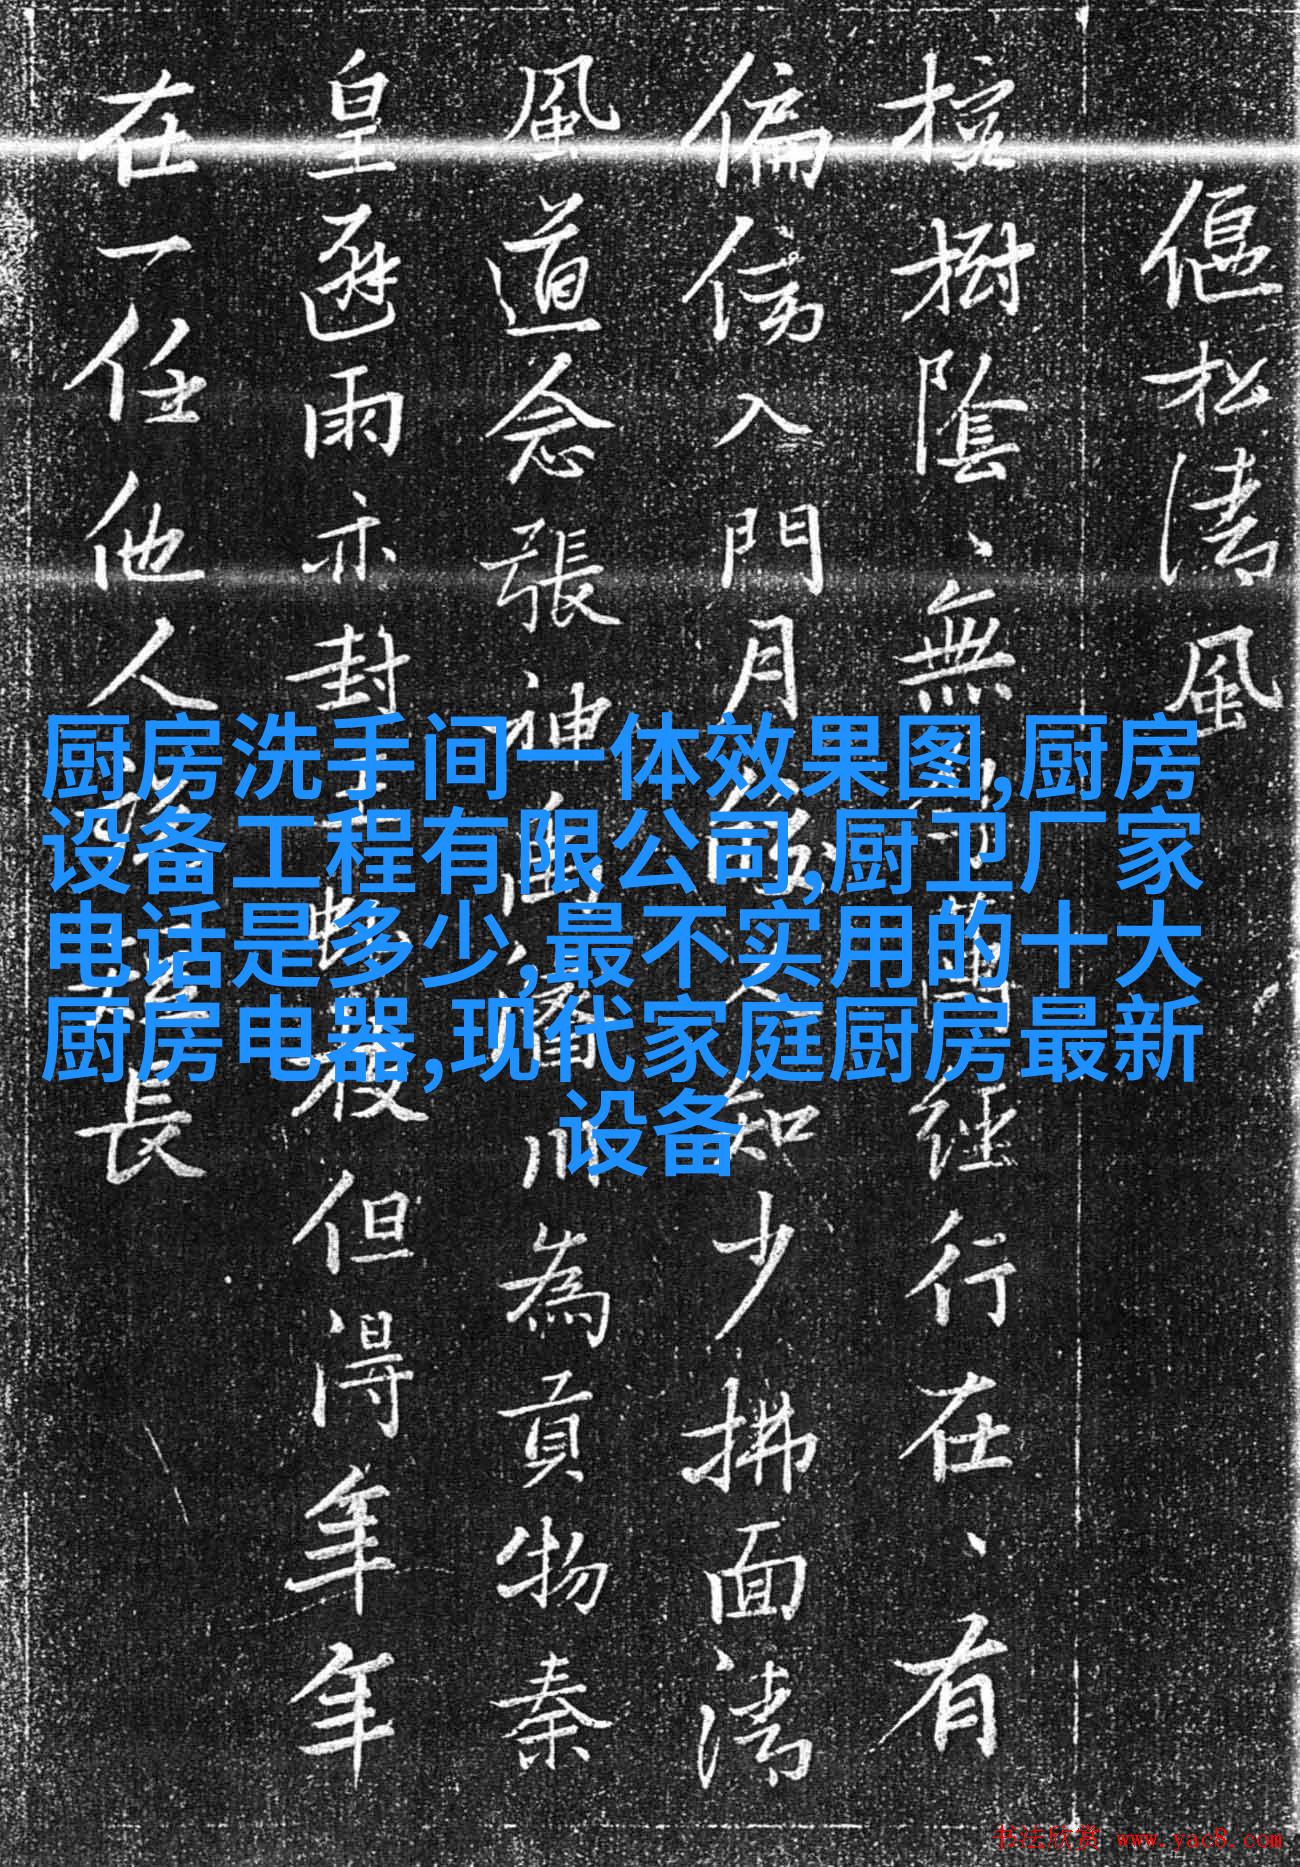 偃松清風
樹陰、無經行在、有
偏傍入門月知少拂面清
風道念張神為貢物秦
皇避雨亦封但得年年
在一任他人長
厨房洗手间一体效果图,厨房
设备工程有限公司,厨卫厂家
电话是多少,最不实用的十大
厨房电器,现代家庭厨房最新
设备
书法欣赏 www.yac8.com